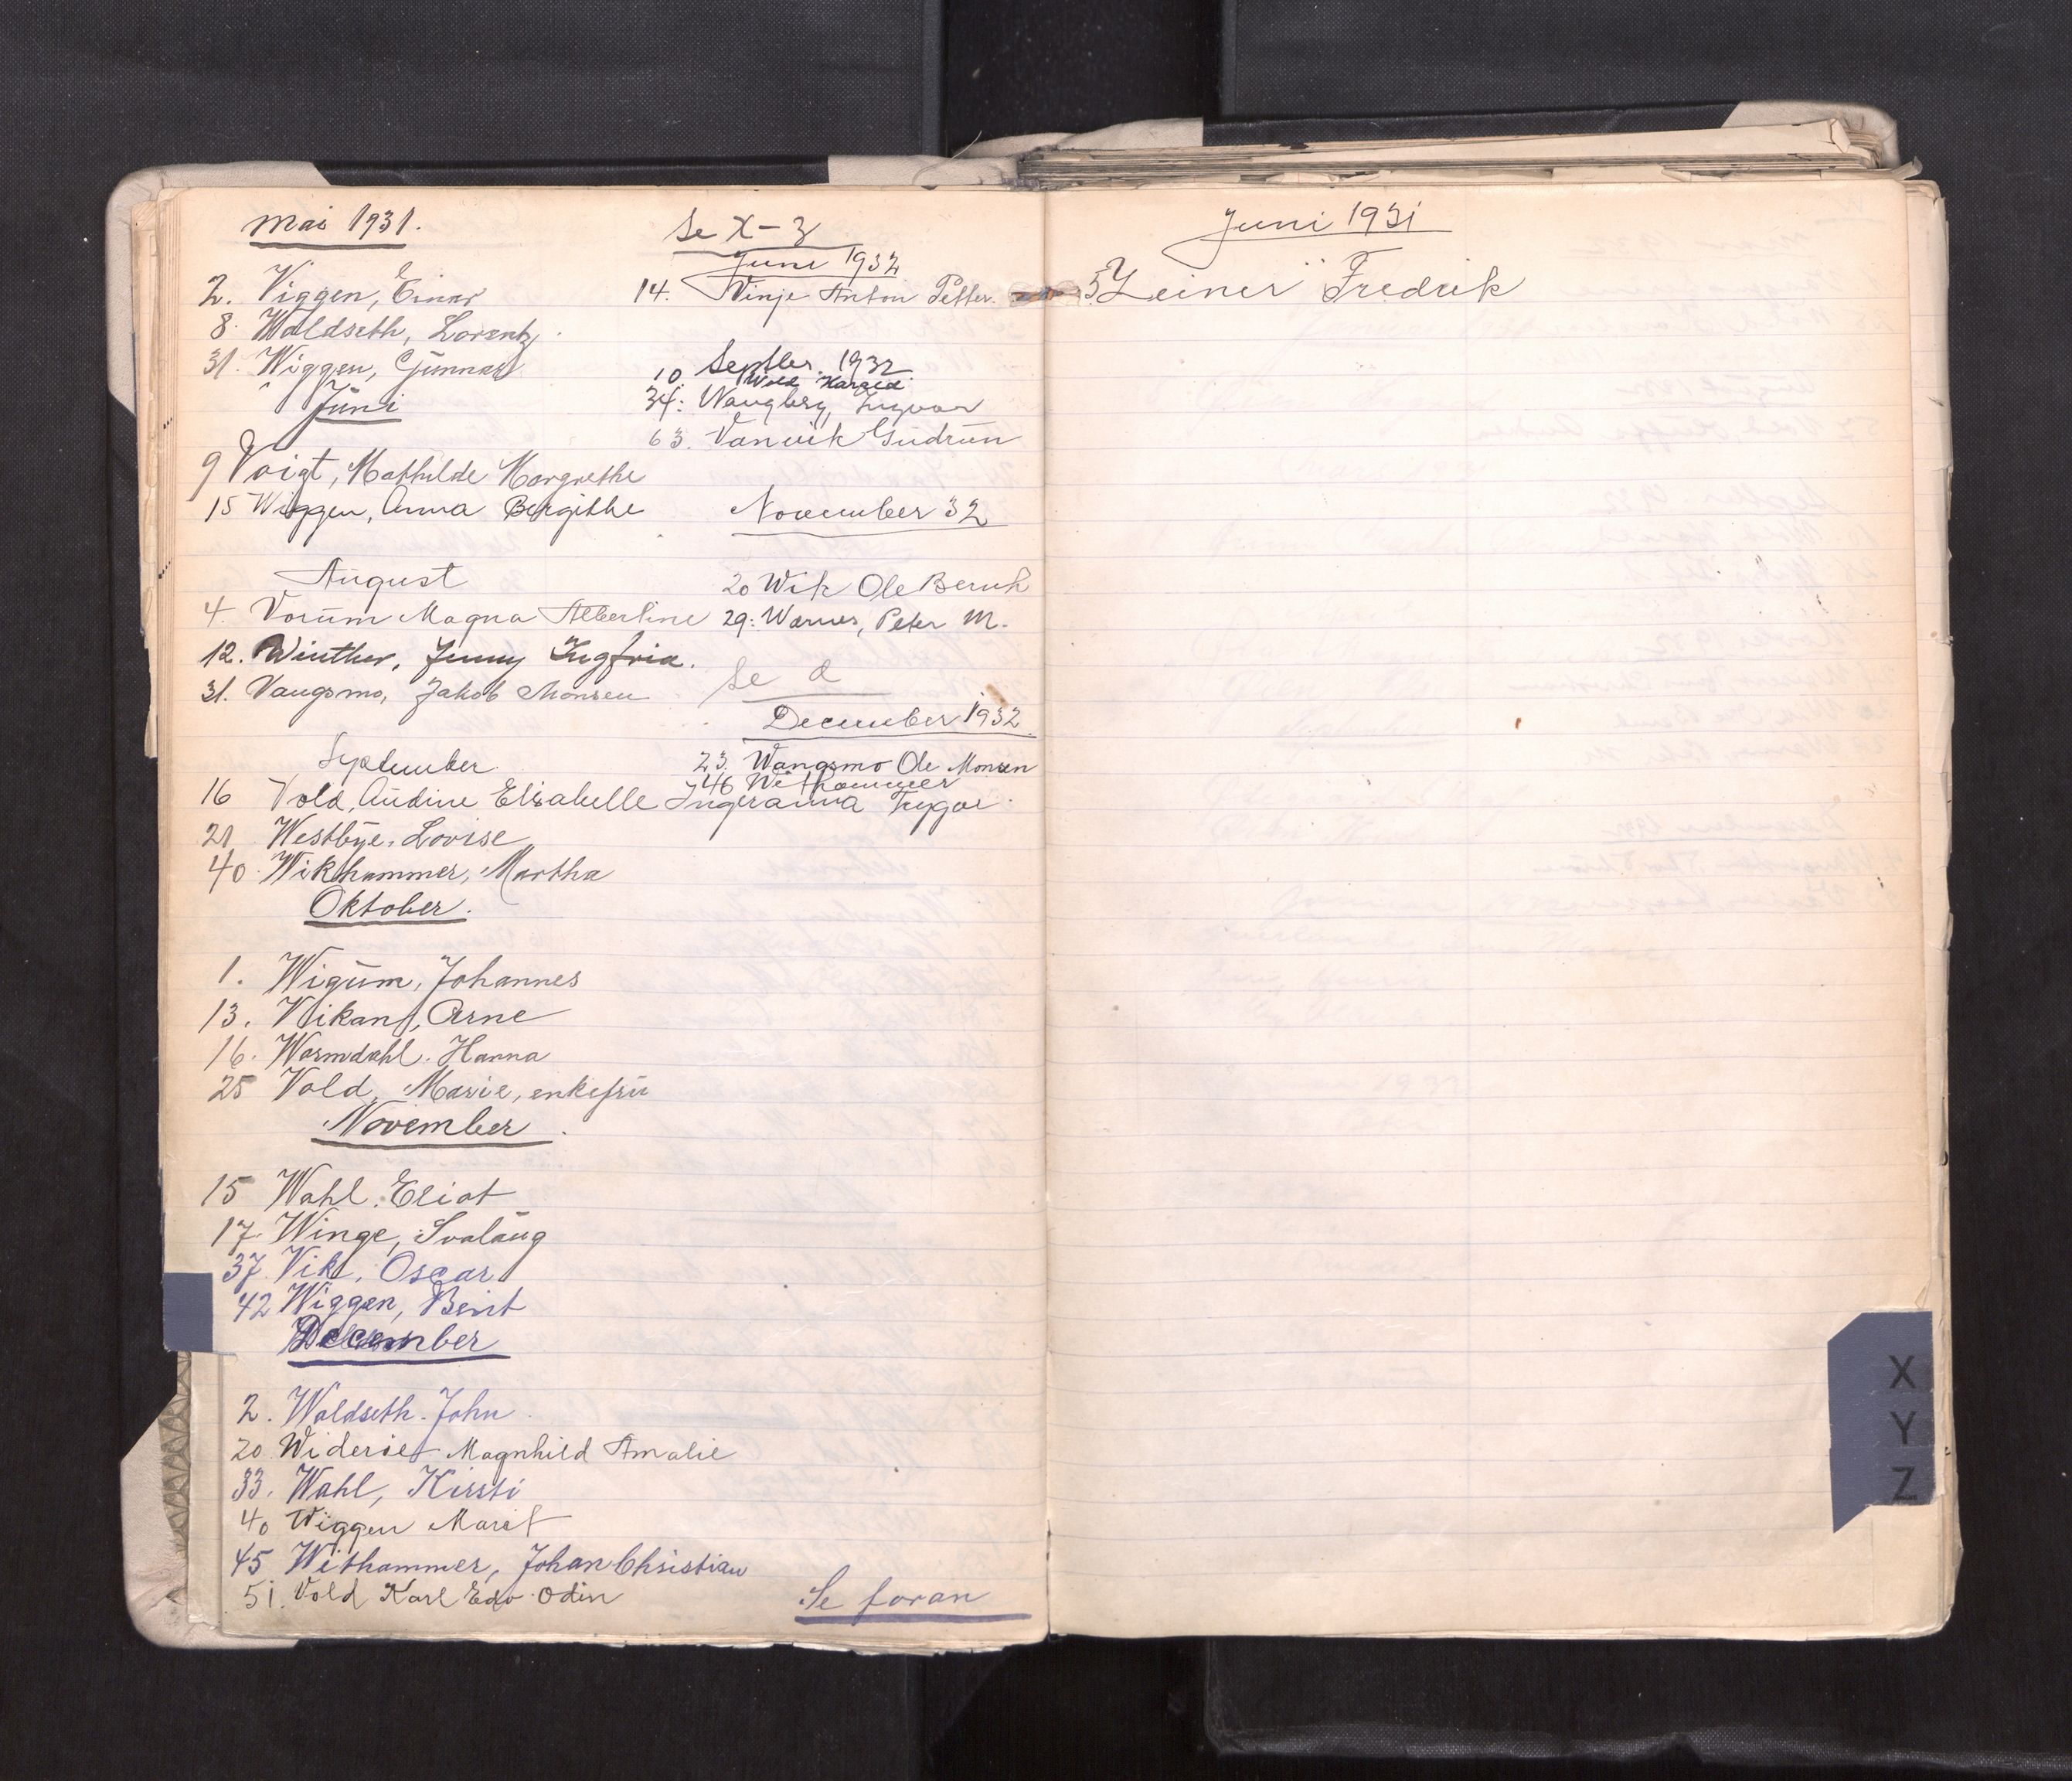 Mai 1931.
2. Viggen, Einar
8. Waldseth, Lorentz
31. Wiggen, Gunnar
Juni
9 Voigt, Mathilde Margrethe
15 Wiggen, Anna Bergithe
August
4. Vorum Magna Albertine
12. Winther, Jenny
31. Vangsmo, Jakob Monsen
September
16 Vold, Audine Elisabelle
21 Westbye, Lovise
40 Wikhammer, Martha
Oktober.
1. Wigum, Johannes
13. Vikan, Arne
16. Warmdahl. Hanna
25 Vold, Marie, enkefru
November.
15 Wahl, Eliot
17. Winge, Svalaug
37. Vik, Oscar
42 Wiggen, Berit
December
2. Waldseth. John
20 Wideröe Magnhild Amalie
33. Wahl, Kirsti
40 Wiggen Marit
45 Withammer, Johan Christian
51. Vold Karl Edv. Odin
Se X-Z
Juni 1932
14. Vinje Anton Petter
Septbr. 1932
10. Wold Harald
34: Wangberg, Ingvar
63. Vanvik Gudrun
November 32
20 Wik Ole Bernh
29: Warnes, Peter M.
Se
December 1932
23. Wangsmo Ole Monsen
46 Withammer
Ingeranna Trygve
Se foran
Juni 1931
5 Zeiner Fredrik
X
Y
Z